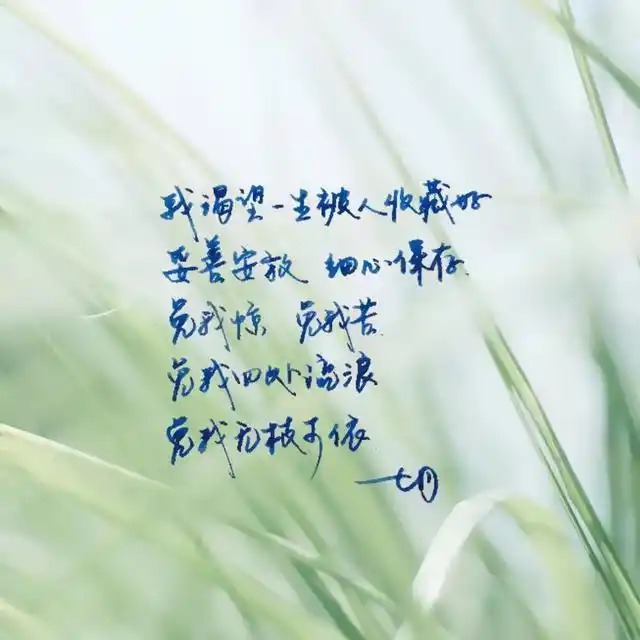 我渴望一生被人收藏好
妥善安放 细心保存
免我惊 免我苦
免我四处流浪
免我无枝可依
一七月